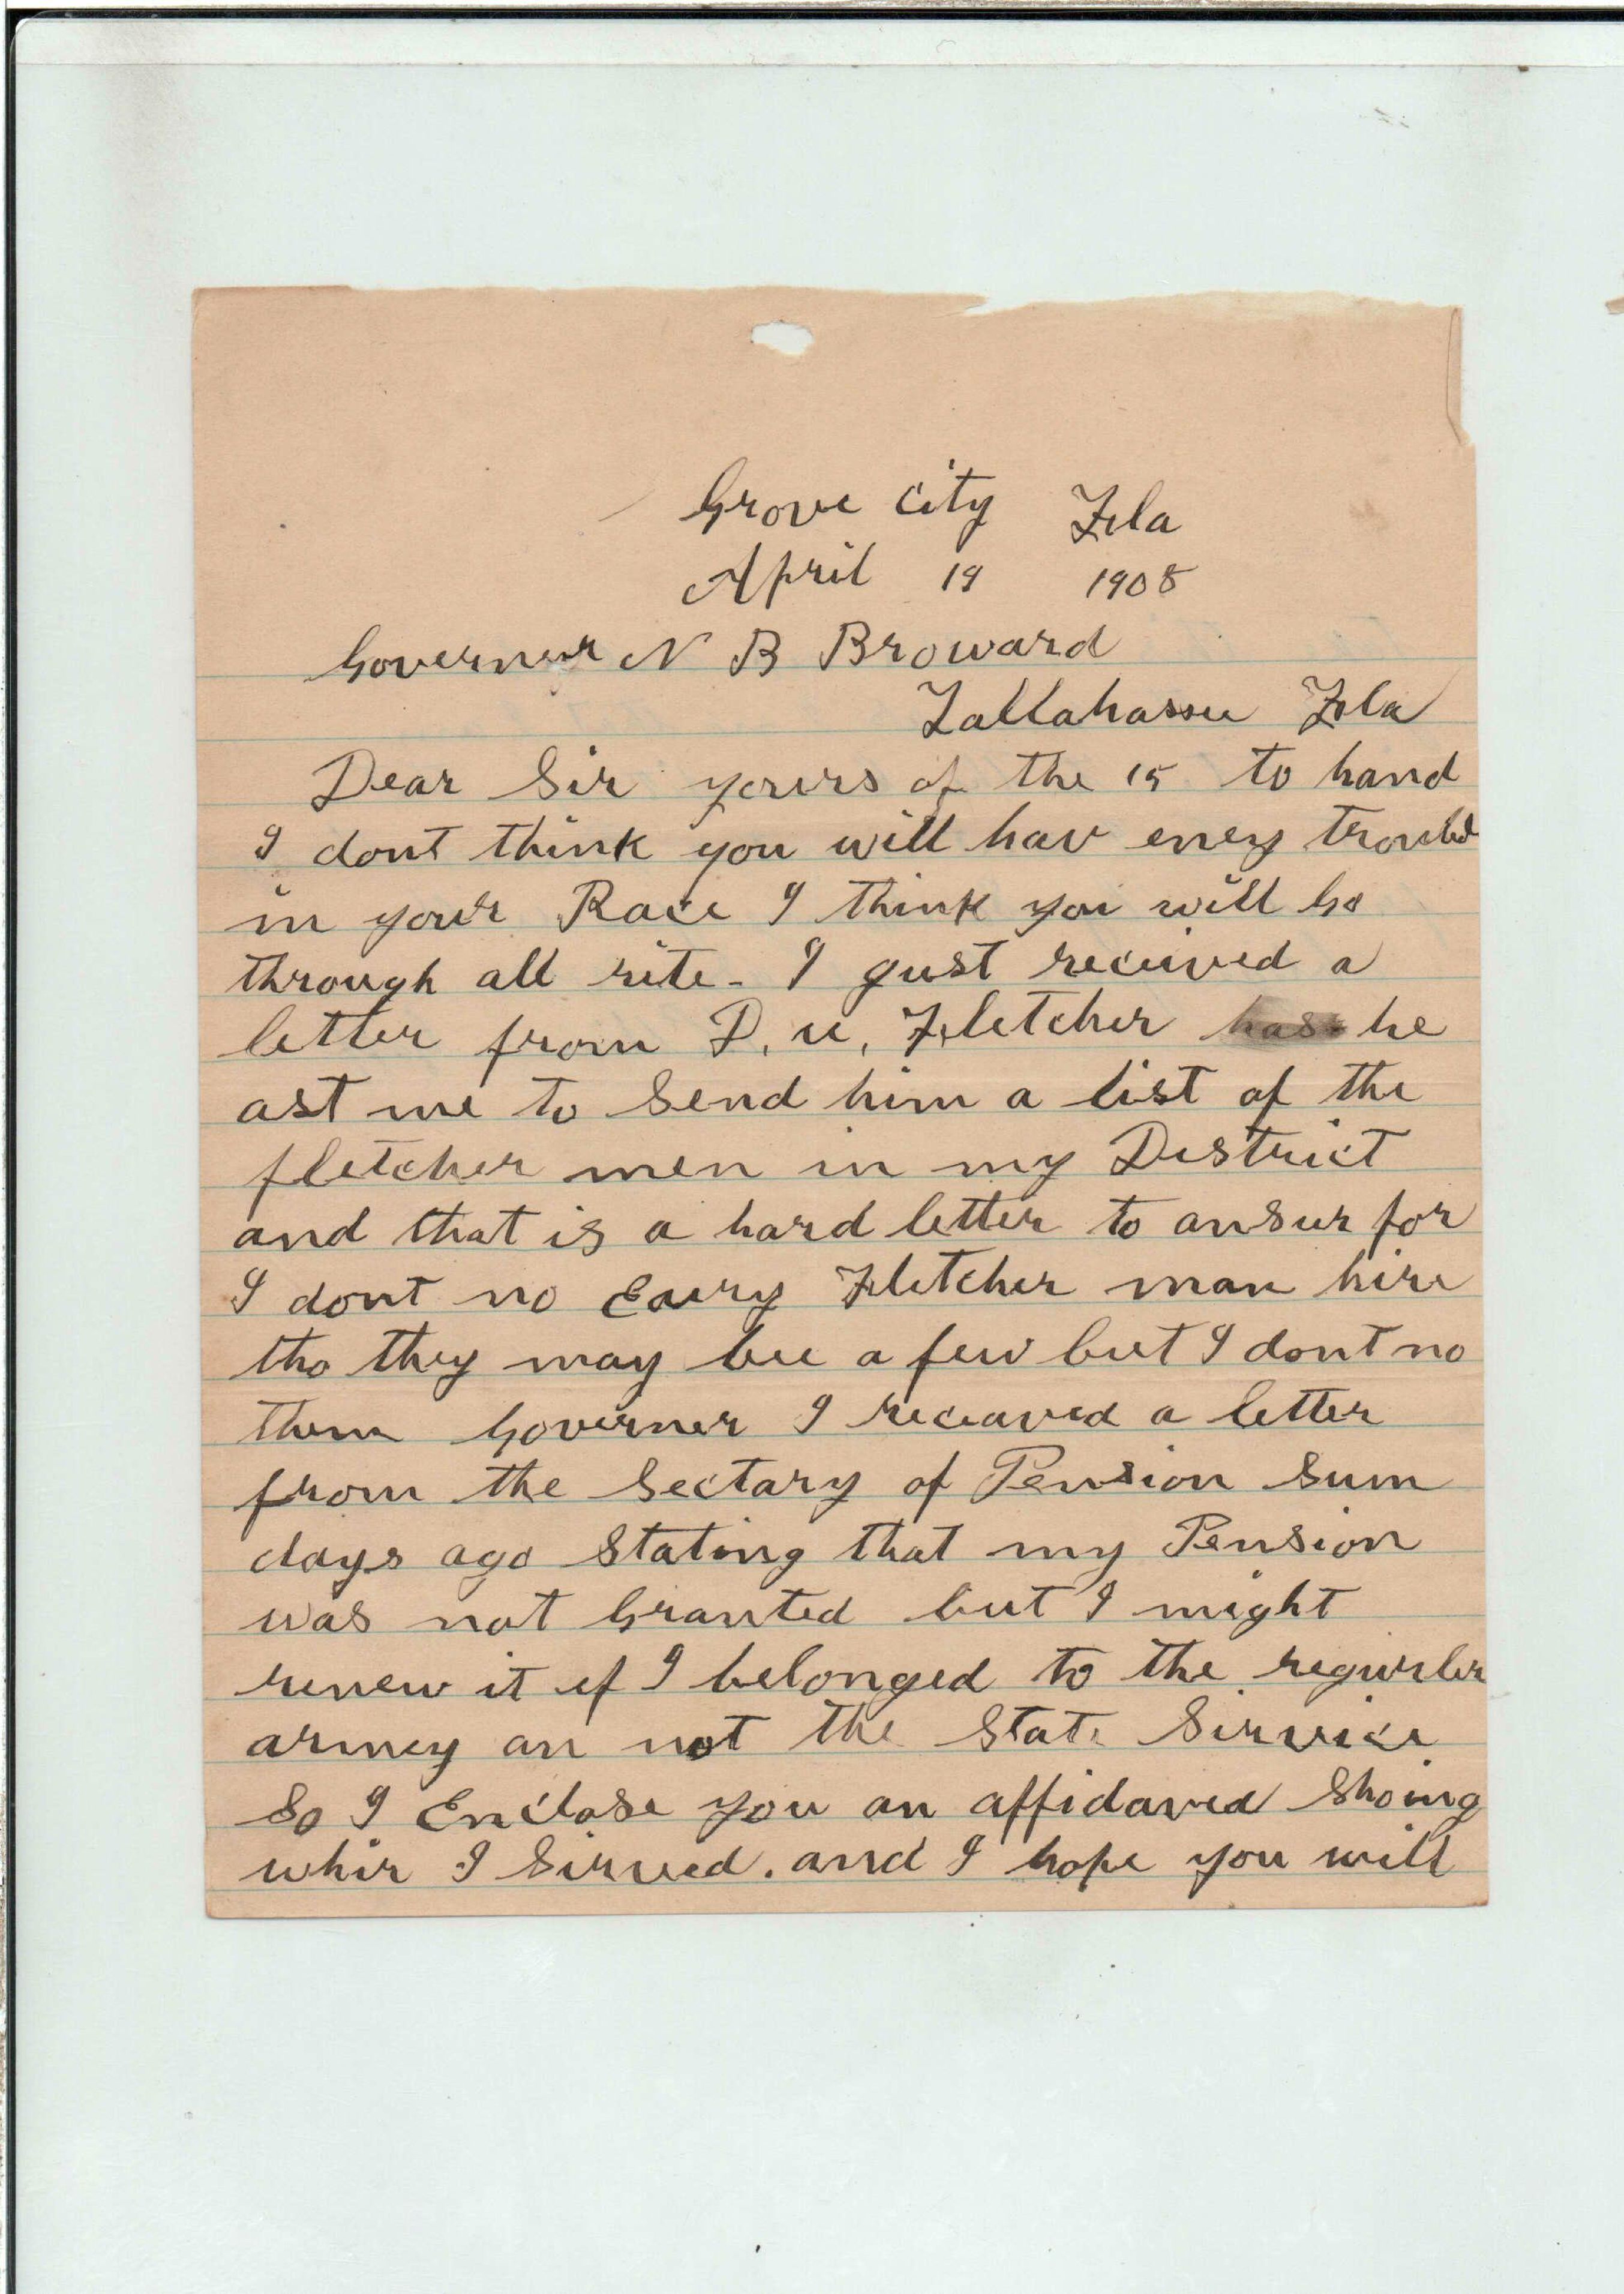 Grove City Fla
April 19 1908
Governer N B Broward
Tallahassee Fla
Dear Sir yours of the 15 to hand
I dont think you will hav eney
in your Race I think you will Go
through all rite - I gust received a
letter from D. U. Fletcher has he
ast me to Send him a list of the
fletcher men in my District
and that is a hard letter to ansur for
I dont no Eavry Fletcher man hire
tho they may bee a few but I dont no
them Governer I receaved a letter
from the Sectary of Pension Sum
days ago Stating that my Pension
was not Granted but I might
renew it if I belonged to the regurler
armey an not the State Service
So I Enclose you an affidaved Shoing
whir I Sirved. and I hope you will